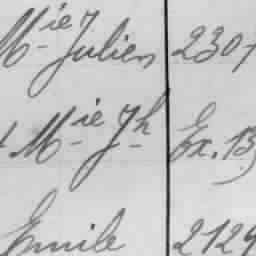 Mie Julien 230
Mie Jh Ex. 13
Emile 212